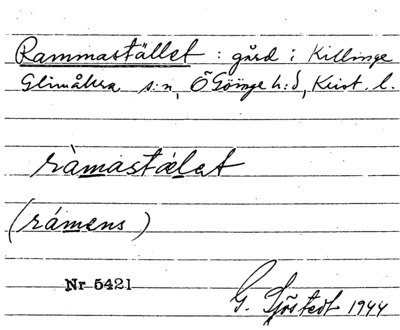 Rammastället : gård i Killinge
Glimåkra s:n, Ö Göinge h:d, Krist. l.
ràmastálet
(rámens)
Nr 5421
G. Sjöstedt 1944